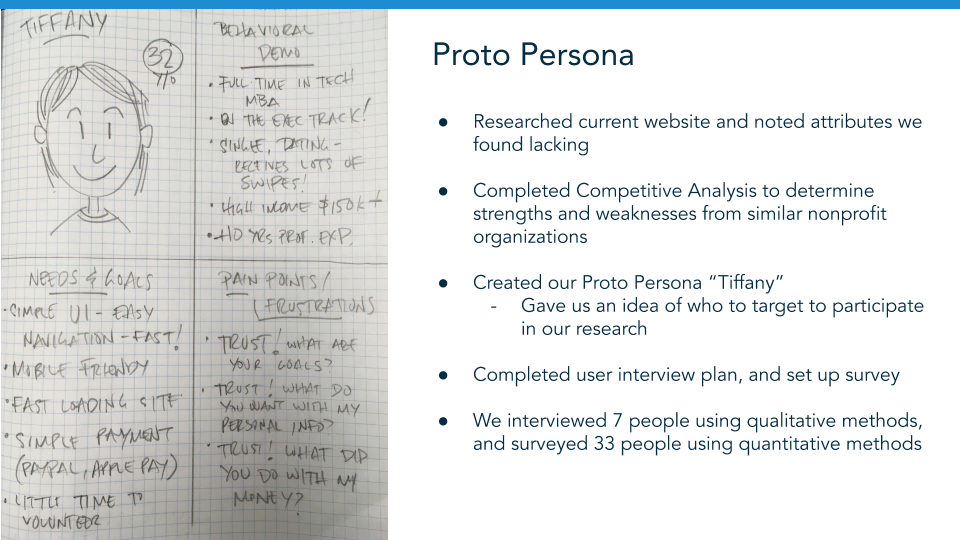 TIFFANY
32
Y/O
BEHAVIORAL
DEMO
• FULL TIME IN TECH
MBA
• ON THE EXEC TRACK!
• SINGLE, DATING -
RECEIVES LOTS OF
SWIPES!
• HIGH INCOME $150K+
• +10 YRS PROF. EXP.
NEEDS & GOALS
• SIMPLE UI - EASY
NAVIGATION - FAST!
• MOBILE FRIENDLY
• FAST LOADING SITE
• SIMPLE PAYMENT
(PAYPAL, APPLE PAY)
• LITTLE TIME TO
VOLUNTEER
PAIN POINTS/
FRUSTRATIONS
• TRUST! WHAT ARE
YOUR GOALS?
• TRUST! WHAT DO
YOU WANT WITH MY
PERSONAL INFO?
• TRUST! WHAT DID
YOU DO WITH MY
MONEY?
Proto Persona
● Researched current website and noted attributes we
found lacking
● Completed Competitive Analysis to determine
strengths and weaknesses from similar nonprofit
organizations
● Created our Proto Persona “Tiffany”
- Gave us an idea of who to target to participate
in our research
● Completed user interview plan, and set up survey
● We interviewed 7 people using qualitative methods,
and surveyed 33 people using quantitative methods